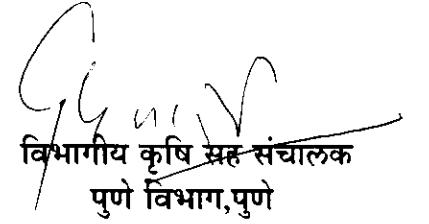 विभागीय कृषि सह संचालक
पुणे विभाग,पुणे